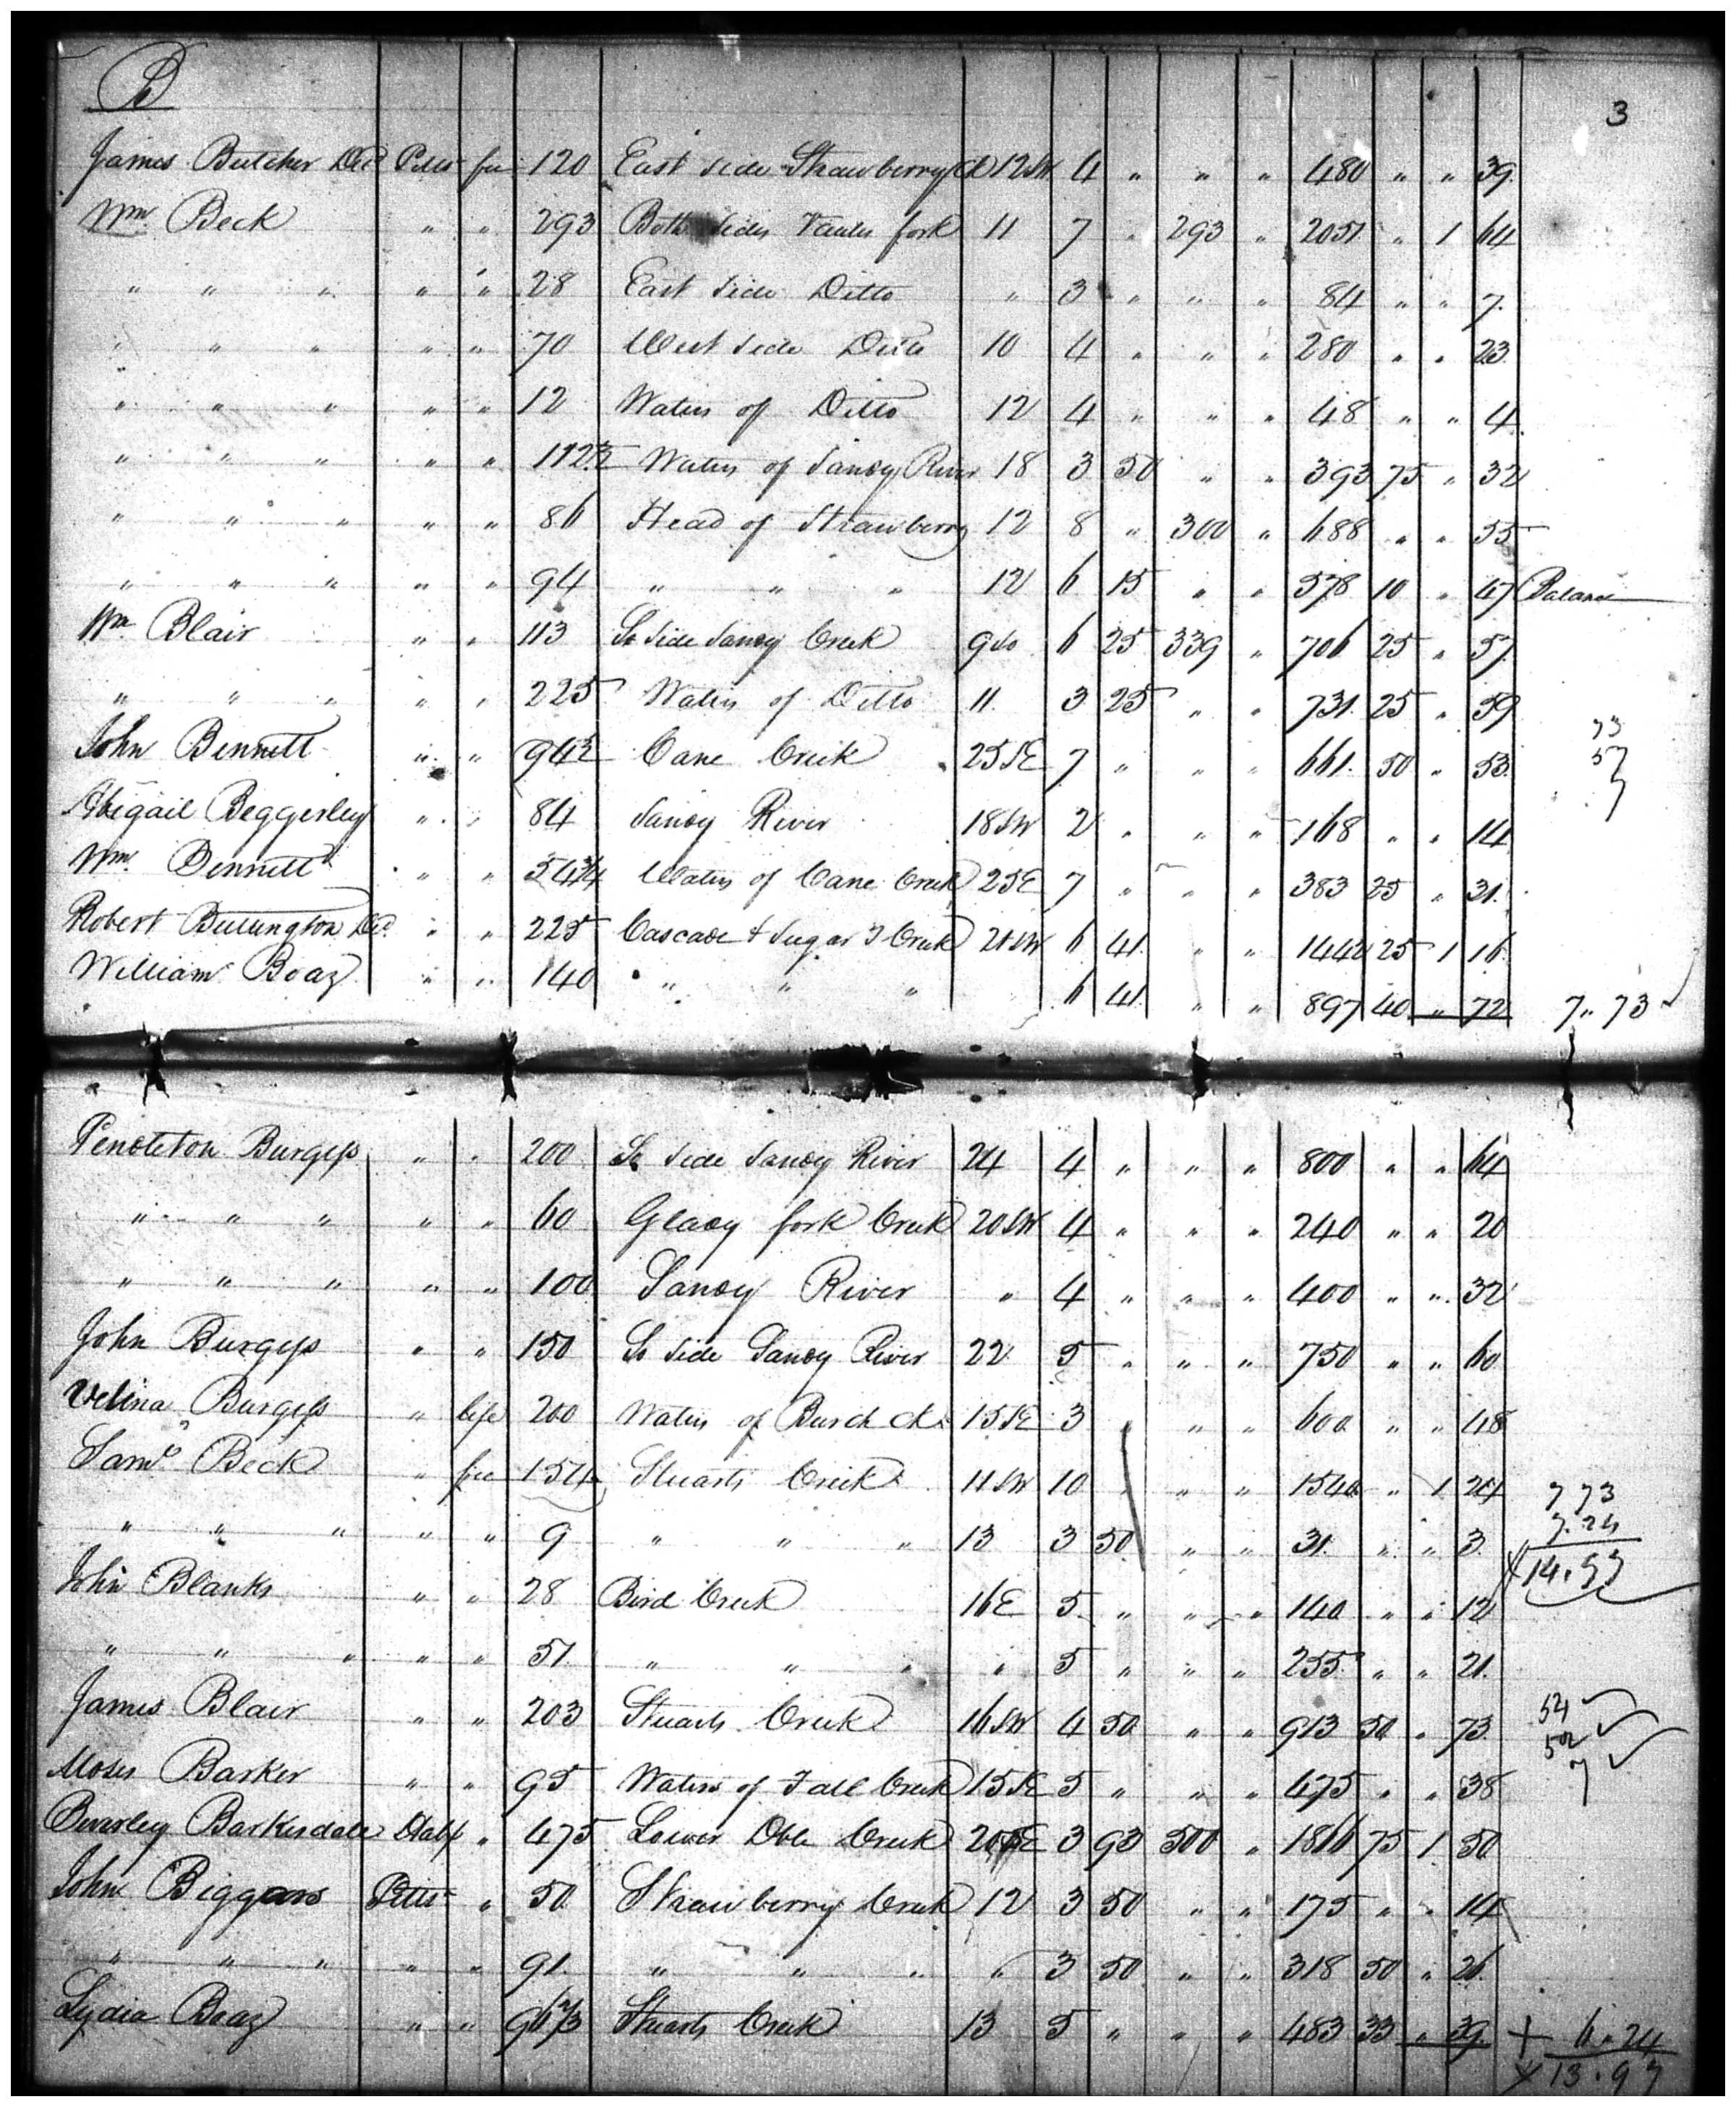 B
3
James Butcher Decd Pitts fee 120 East side Strawberry Ck 12 SW 4 " " " 480 " " 39
Wm Beck " " 293 Both sides fork 11 7 " 293 " 2051 " 1 64
" " " " " 28 East side Ditto " 3 " " " 84 " " 7
" " " " " 70 West side Ditto 10 4 " " " 280 " " 23
" " " " " 12 Waters of Ditto 12 4 " " " 48 " " 4
" " " " " 112½ Waters of Sandy River 18 3 50 " " 393 75 " 32
" " " " " 86 Head of Strawberry 12 8 " 300 " 688 " " 55
" " " " " 94 " " " 12 6 15 " " 578 10 " 47 Balance
Wm Blair " " 113 So side Sandy Creek 9 So 6 25 339 " 706 25 " 57
" " " " " 225 Waters of Ditto 11 3 25 " " 731 25 " 59
John Bennett " " 94½ Cane Creek 25 SE 7 " " " 661 50 " 53
Abigail Beggerley " " 84 Sandy River 18 SW 2 " " " 168 " " 14
Wm Bennett " " 54¾ Waters of Cane Creek 25 E 7 " " " 383 25 " 31
Robert Bullington Decd " " 225 Cascade & Sugar T Creek 20 SW 6 41 " " 1442 25 1 16
William Boaz " " 140 " " " 6 41 " " 897 40 " 72 7 " 73
Pendleton Burgess " " 200 So side Sandy River 24 4 " " " 800 " " 64
" " " " " 60 Glady fork Creek 20 SW 4 " " " 240 " " 20
" " " " " 100 Sandy River " 4 " " " 400 " " 32
John Burgess " " 150 So side Sandy River 22 5 " " " 750 " " 60
Velina Burgess " life 200 Waters of Burch Ck 15 SE 3 " " " 600 " " 48
Saml Beck " fee 154 Stuarts Creek 11 SW 10 " " " 1540 " 1 24 7 73
" " " " " 9 " " " 13 3 50 " " 31 " " 3 7.24
14.97
John Blanks " " 28 Bird Creek 16 E 5 " " " 140 " " 12
" " " " " 51 " " " " 5 " " " 255 " " 21
James Blair " " 203 Stuarts Creek 16 SW 4 50 " " 913 50 " 73
Moses Barker " " 95 Waters of Fall Creek 15 SE 5 " " " 475 " " 38
Beverley Barkesdale Halifx " 475 Lower Dble Creek 20 SE 3 93 500 " 1866 75 1 50
John Biggars Pitts " 50 Strawberry Creek 12 3 50 " " 175 " " 14
" " " " " 91 " " " " 3 50 " " 318 50 " 26
Lydia Boaz " " 96⅔ Stuarts Creek 13 5 " " " 483 33 " 39 6 " 24
13.97